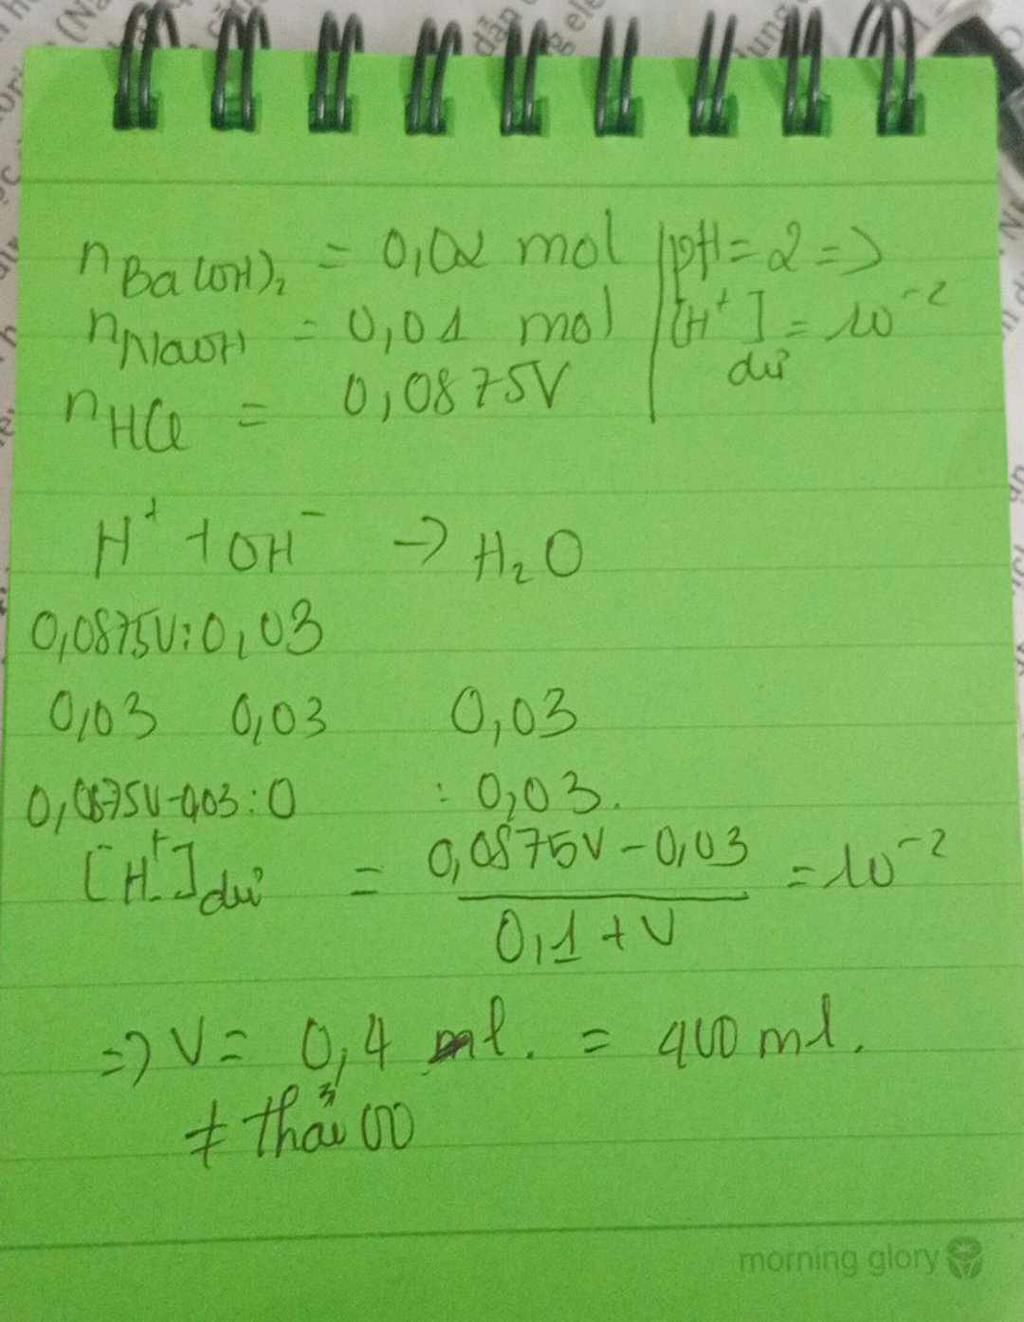 n Ba(OH)₂ = 0,02 mol | pH = 2 =>
n NaOH = 0,01 mol | [H⁺] dư = 10⁻²
n HCl = 0,0875V
H⁺ + OH⁻ → H₂O
0,0875V : 0,03
0,03 0,03 0,03
0,0875V-0,03 : 0 : 0,03.
[H⁺] dư = (0,0875V - 0,03) / (0,1 + V) = 10⁻²
=> V = 0,4 l. = 400 ml.
morning glory